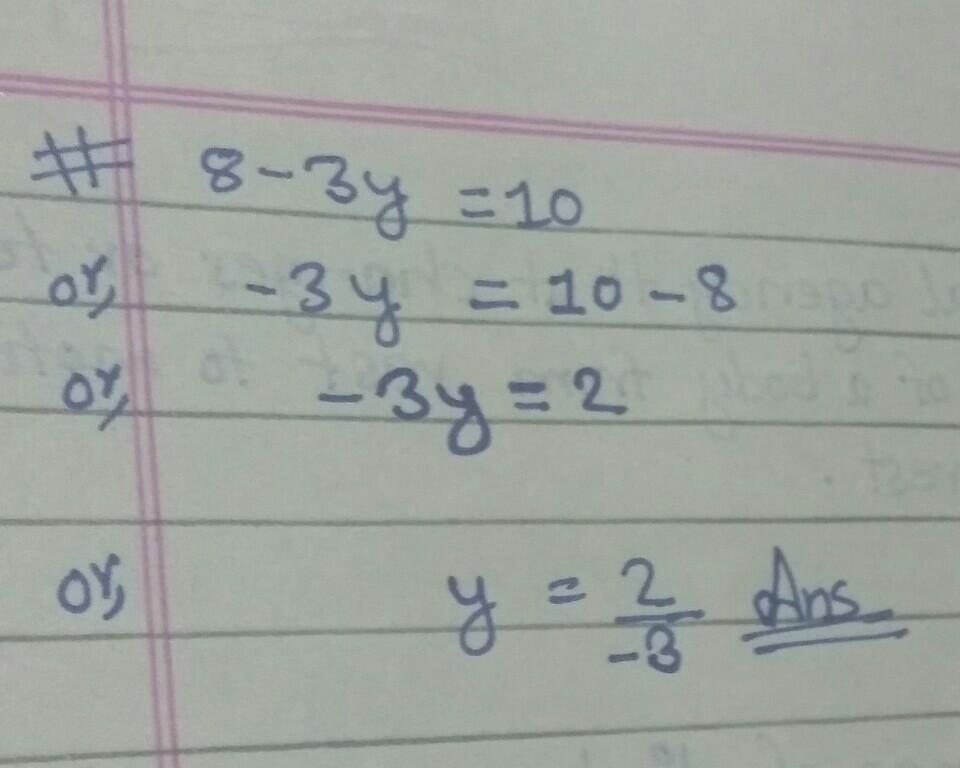 # 8-3y = 10
or, -3y = 10-8
or, -3y = 2
or, y = 2/-3 Ans